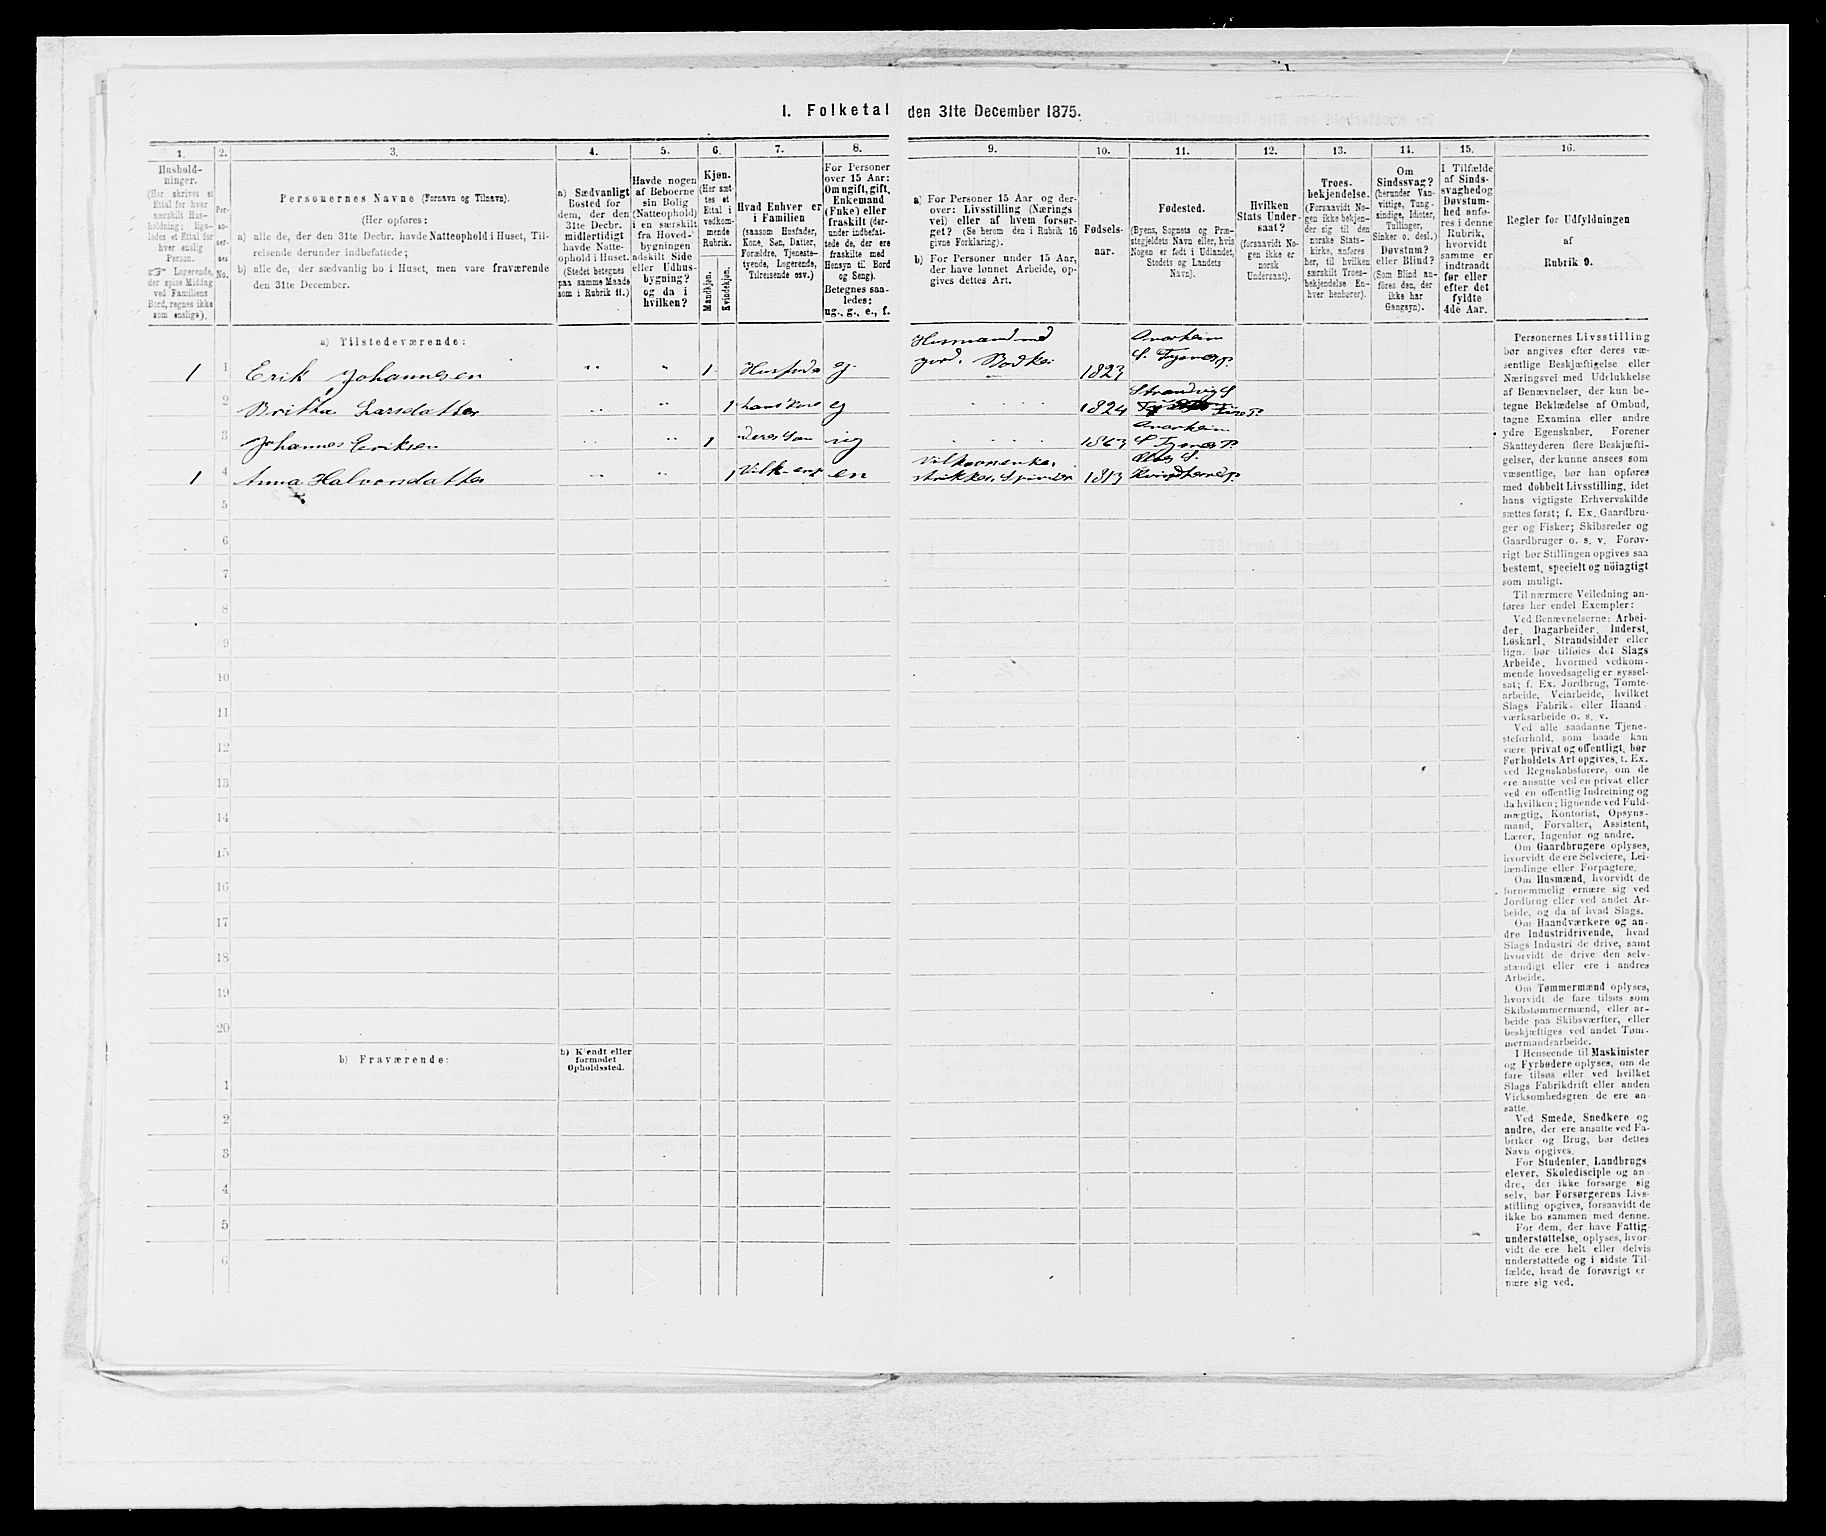 1. Folketal den 31te December 1875.
1.
2.
3.
4.
5.
6.
7.
8.
9.
10.
11.
12.
13.
14.
15.
16.
Hushold-
ninger.
(Her skrives et
Ettal for hver
særskilt Hus-
holdning; lige-
ledes et Ettal for
hver enslig
Person.
☞ Logerende,
der spise Middag
ved Familiens
Bord, regnes ikke
som enslige).
Per-
so-
ner-
nes
No.
Personernes Navne (Fornavn og Tilnavn).
(Her opføres:
a) alle de, der den 31te Decbr. havde Natteophold i Huset, Til-
reisende derunder indbefattede;
b) alle de, der sædvanlig bo i Huset, men vare fraværende
den 31te December.
a) Sædvanligt
Bosted for
dem, der den
31te Decbr.
midlertidigt
havde Natte-
ophold i Huset.
(Stedet betegnes
paa samme Maade
som i Rubrik 11.)
Havde nogen
af Beboerne
sin Bolig
(Natteophold)
i en særskilt
fra Hoved-
bygningen
adskilt Side
eller Udhus-
bygning?
og da i
hvilken?
Kjøn.
(Her sæt-
tes et
Ettal i
vedkom-
mende
Rubrik.
Mandkjøn.
Kvindekjøn.
Hvad Enhver er
i Familien
(saasom Husfader,
Kone, Søn, Datter,
Forældre, Tjeneste-
tyende, Logerende,
Tilreisende osv.)
For Personer
over 15 Aar:
Om ugift, gift,
Enkemand
(Enke) eller
fraskilt (der-
under indbefat-
tede de, der ere
fraskilte med
Hensyn til Bord
og Seng).
Betegnes saa-
ledes:
ug., g., e., f.
a) For Personer 15 Aar og der-
over: Livsstilling (Nærings
vei) eller af hvem forsør-
get? (Se herom den i Rubrik 16
givne Forklaring).
b) For Personer under 15 Aar,
der have lønnet Arbeide, op-
gives dettes Art.
Fødsels-
aar.
Fødested.
(Byens, Sognets og Præ-
stegjeldets Navn eller, hvis
Nogen er født i Udlandet,
Stedets og Landets
Navn).
Hvilken
Stats Under-
saat?
(forsaavidt No-
gen ikke er
norsk
Undersaat).
Troes-
bekjendelse.
(Forsaavidt No-
gen ikke bekjen-
der sig til den
norske Stats-
kirke, anføres
her, til hvilken
særskilt Troes-
bekjendelse En-
hver henhører).
Om
Sindssvag?
(herunder Van-
vittige, Tung-
sindige, Idioter,
Tullinger,
Sinker o. desl.)
Døvstum?
eller Blind?
(Som Blind an-
føres den, der
ikke har
Gangsyn).
I Tilfælde
af Sinds-
svaghed og
Døvstum-
hed anfø-
res i denne
Rubrik,
hvorvidt
samme er
indtraadt
før eller
efter det
fyldte
4de Aar.
Regler for Udfyldningen
af
Rubrik 9.
a) Tilstedeværende:
1 1 Erik Johannesen " " 1 g. Husmand med jord. 1823
2 Britha Larsdatter " " 1 g 1824 Strandvig S
3 Johannes Eriksen " " 1 deres Søn ug " 1863 S. Tysnes P.
1 4 Anna Halvorsdatter " " 1 1813
5
6
7
8
9
10
11
12
13
14
15
16
17
18
19
20
b) Fraværende:
b) Kjendt eller
formodet
Opholdssted.
1
2
3
4
5
6
Personernes Livsstilling
bør angives efter deres væ-
sentlige Beskjæftigelse eller
Næringsvei med Udelukkelse
af Benævnelser, der kun be-
tegne Beklædelse af Ombud,
tagne Examina eller andre
ydre Egenskaber. Forener
Skatteyderen flere Beskjæfti-
gelser, der kunne ansees som
væsentlige, bør han opføres
med dobbelt Livsstilling, idet
hans vigtigste Erhvervskilde
sættes først; f. Ex. Gaardbru-
ger og Fisker; Skibsreder og
Gaardbruger o. s. v. Forøv-
rigt bør Stillingen opgives saa
bestemt, specielt og nöiagtigt
som muligt.
Til nærmere Veiledning an-
føres her endel Exempler:
Ved Benævnelserne: Arbei-
der, Dagarbeider, Inderst,
Løskarl, Strandsidder eller
lign. bør tilføies det Slags
Arbeide, hvormed vedkom-
mende hovedsagelig er syssel-
sat; f. Ex. Jordbrug, Tomte-
arbeide, Veiarbeide, hvilket
Slags Fabrik- eller Haand-
værksarbeide o. s. v.
Ved alle saadanne Tjene-
steforhold, som baade kan
være privat og offentligt, bør
Forholdets Art opgives, t. Ex.
ved Regnskabsførere, om de
ere ansatte ved en privat eller
ved en offentlig Indretning og
da hvilken; lignende ved Fuld-
mægtig, Kontorist, Opsyns-
mand, Forvalter, Assistent,
Lærer, Ingeniør og andre.
Om Gaardbrugere oplyses,
hvorvidt de ere Selveiere, Lei-
lændinge eller Forpagtere.
Om Husmænd, hvorvidt de
fornemmelig ernære sig ved
Jordbrug eller ved andet Ar-
beide, og da af hvad Slags.
Om Haandværkere og an-
dre Industridrivende, hvad
Slags Industri de drive, samt
hvorvidt de drive den selv-
stændigt eller ere i andres
Arbeide.
Om Tømmermænd oplyses,
hvorvidt de fare tilsøs som
Skibstømmermænd, eller ar-
beide paa Skibsværfter, eller
beskjæftiges ved andet Tøm-
mermandsarbeide.
I Henseende til Maskinister
og Fyrbødere oplyses, om de
fare tilsøs eller ved hvilket
Slags Fabrikdrift eller anden
Virksomhedsgren de ere an-
satte.
Ved Smede, Snedkere og
andre, der ere ansatte ved Fa-
briker og Brug, bør dettes
Navn opgives.
For Studenter, Landbrugs-
elever, Skoledisciple og an-
dre, der ikke forsørge sig
selv, bør Forsørgerens Livs-
stilling opgives, forsaavidt de
ikke bo sammen med denne.
For dem, der have Fattig-
understøttelse, oplyses, hvor-
vidt de ere helt eller delvis
understøttede og i sidste Til-
fælde, hvad de forøvrigt er-
nære sig ved.